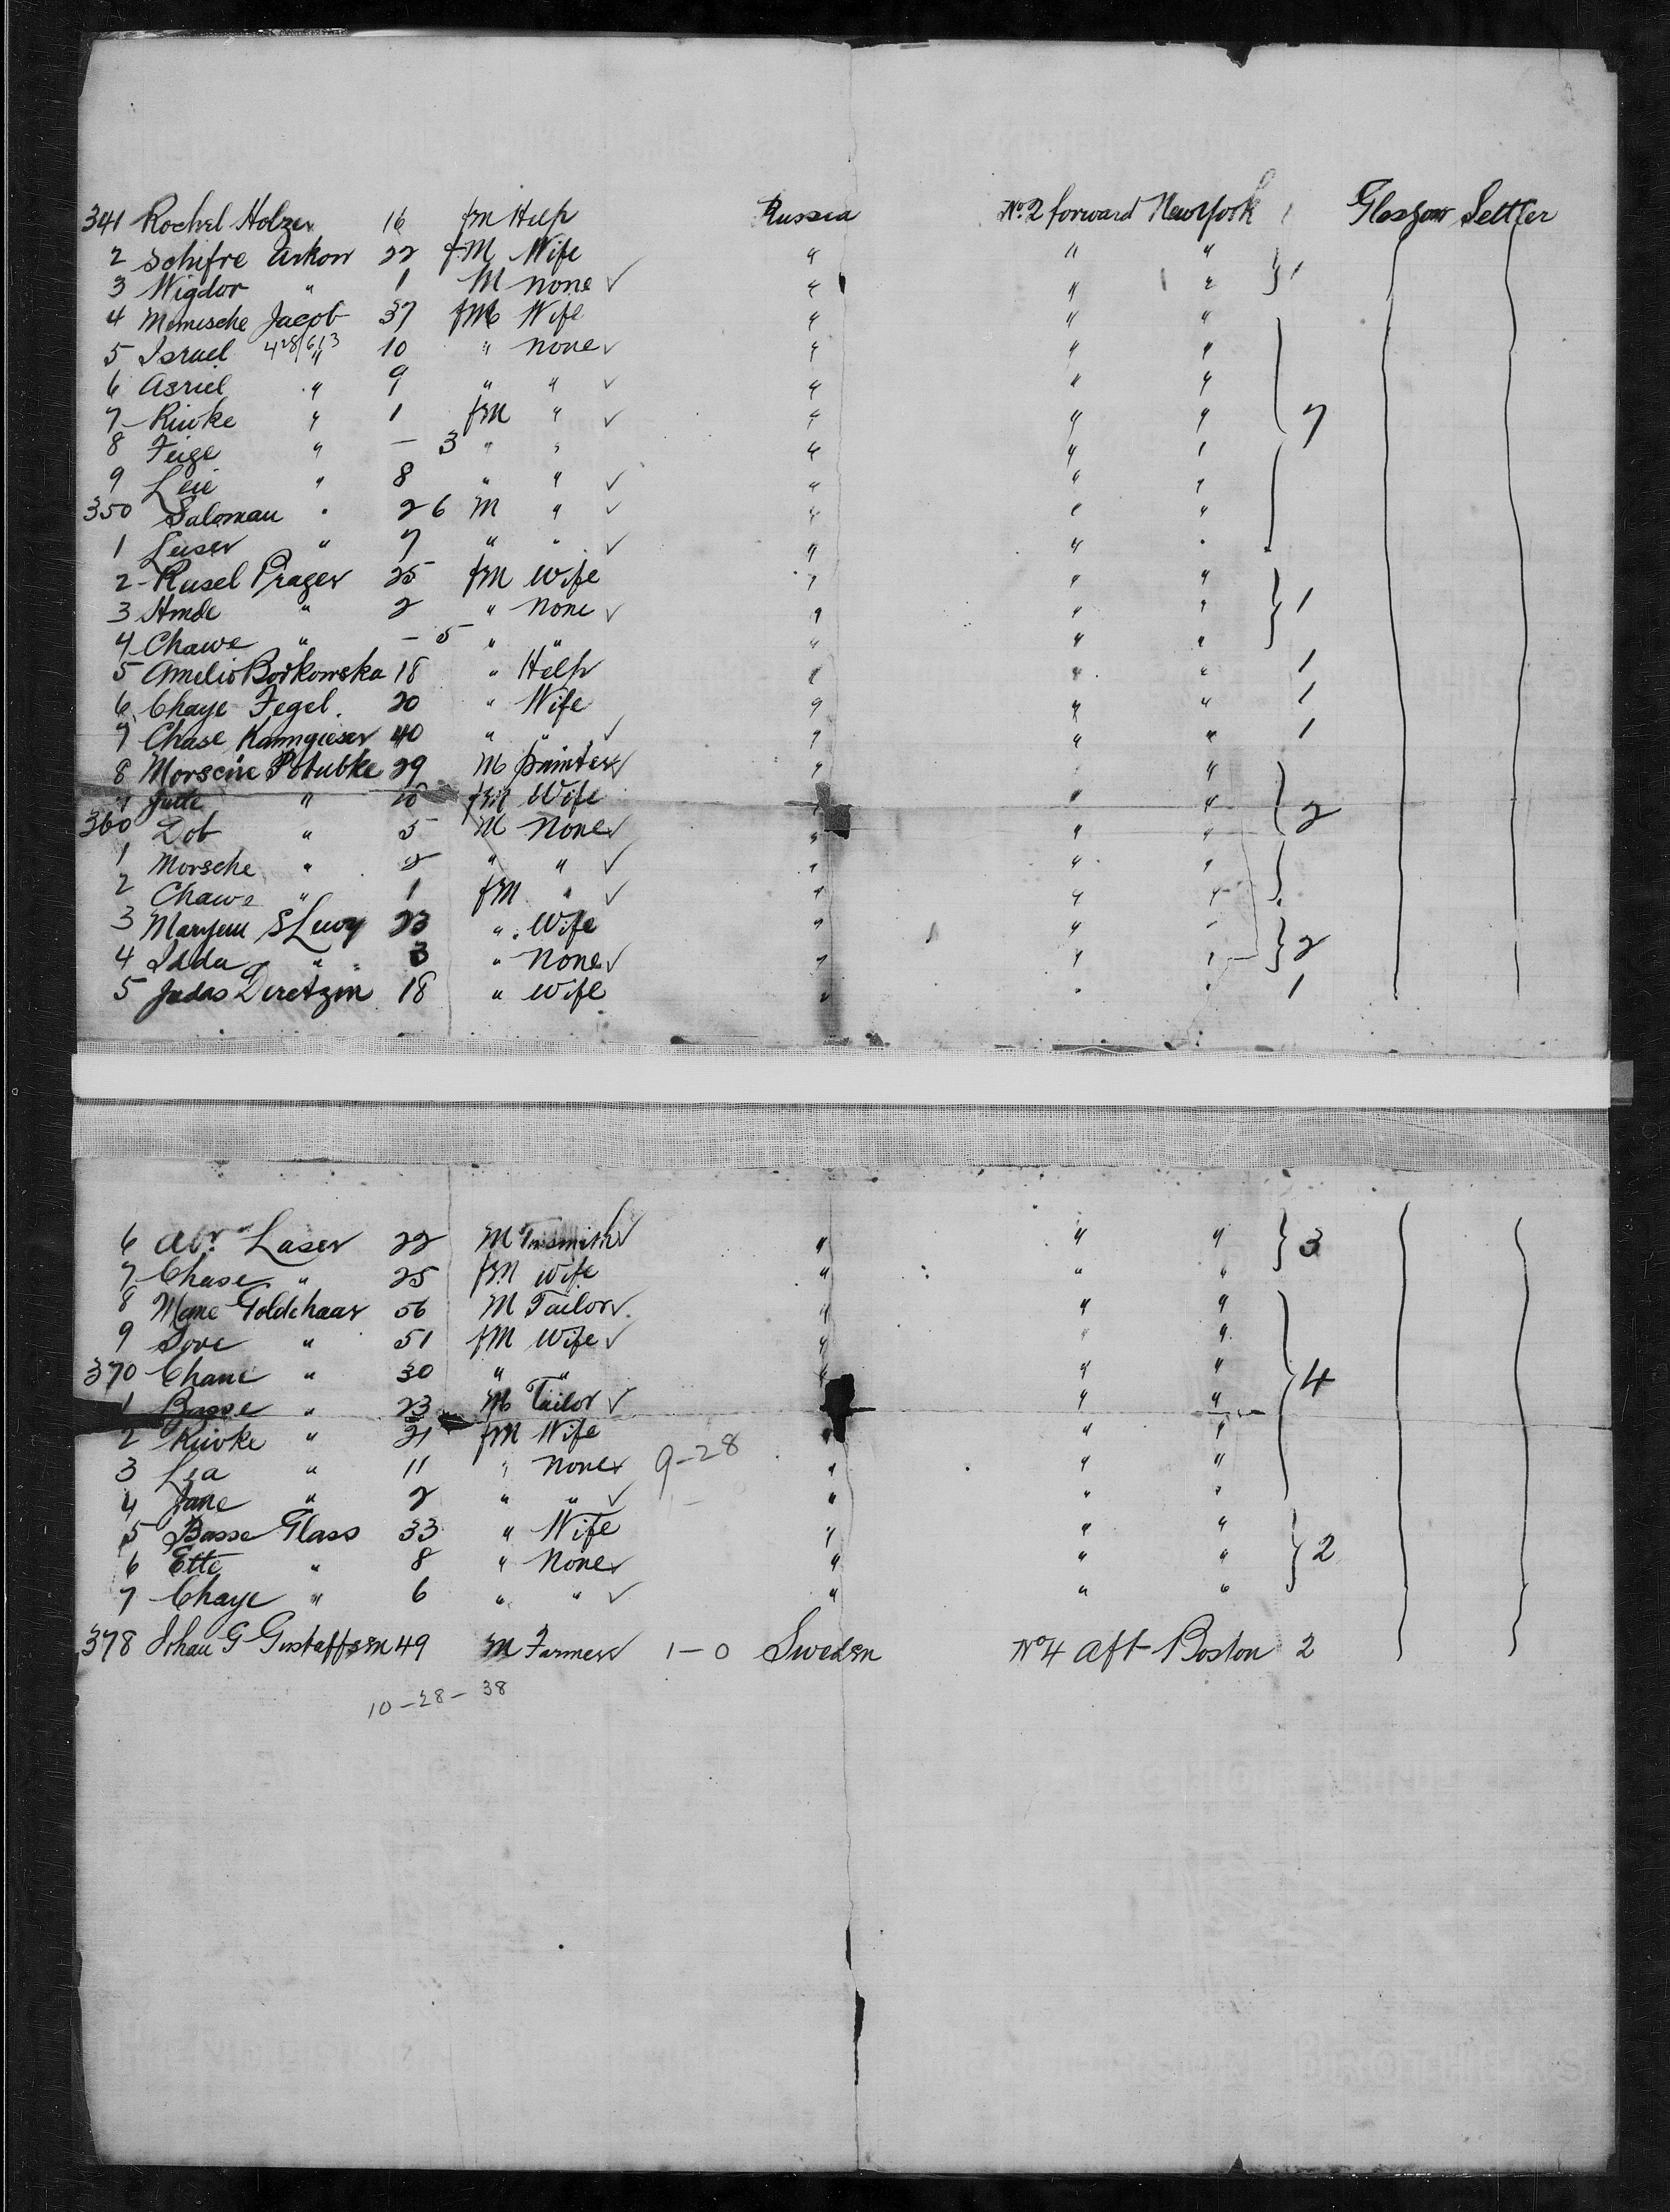 341 Rochel Holzer 16 fm Help Russia No. 2 forward New York 1 Glasgow Settler
2 Schifre Arkow 22 fM Wife " " "
3 Wigdor " 1 M none ✓ " " " } 1
4 Memische Jacob 37 fM Wife " " "
5 Israel 428/613 " 10 " none ✓ " " "
6 Asriel " 9 " " ✓ " " "
7 Riwke " 1 fM " ✓ " " " 7
8 Feige " - 3 " " " " "
9 Leie " 8 " " ✓ " " "
350 Saloman " 26 M " ✓ " " "
1 Leiser " 7 " " ✓ " " "
2 Rusel Prager 25 fM Wife " " "
3 Hinde " 2 " none ✓ " " " } 1
4 Chawe " - 5 " " " " "
5 Amelio Borkowska 18 " Help " " " 1
6 Chaye Fegel 20 " Wife " " " 1
7 Chase Kanngieser 40 " " ✓ " " " 1
8 Morsche Potubke 29 M painter ✓ " " "
9 Jutte " fM Wife " " " } 2
360 Lob " 5 M None ✓ " " "
1 Morsche " 2 " " ✓ " " "
2 Chawe " 1 fM " ✓ " " "
3 Maryem S Levy 23 " Wife " " "
4 Idda " " 3 " None ✓ " " " } 2
5 Judas Deretzin 18 " Wife " " " 1
6 Abr. Laser 22 M Tinsmith ✓ " " " } 3
7 Chase " 25 fM Wife " " "
8 Mane Goldehaar 56 M Tailor ✓ " " "
9 Sore " 51 fM Wife ✓ " " "
370 Chane " 30 " " " " " } 4
1 Basse " 23 M Tailor ✓ " " "
2 Riwke " 21 fM Wife " " "
3 Lea " 11 " none ✓ 9-28 " " "
4 Jane " 2 " " ✓ " " "
5 Basse Glass 33 " Wife " " "
6 Ette " 8 " None ✓ " " " } 2
7 Chaye " 6 " " ✓ " " "
378 Johan G Gustaffsen 49 M Farmer ✓ 1-0 Sweden No 4 aft Boston 2
10-28-38